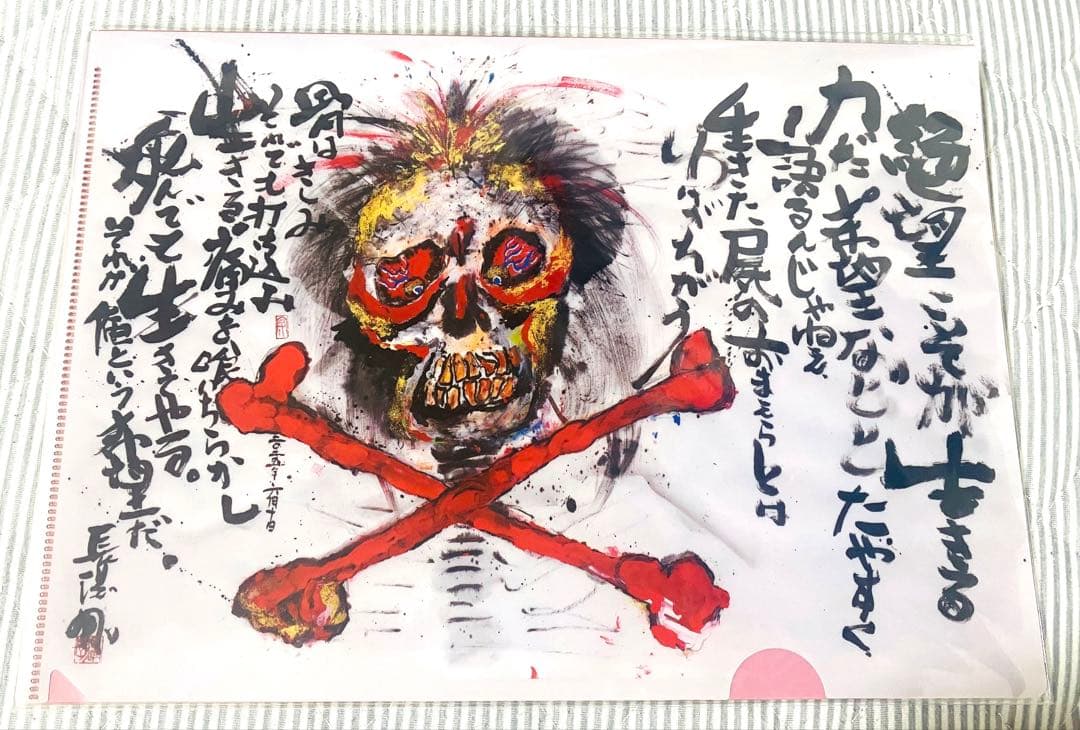 絶望こそが生きる
力だ希望などとたやすく
語るんじゃねえ
生きた屍のおまえらとは
いのちがちがう
骨はきしみ
それでも打込み
生きる痛みよ喰いちらかし
死んでも生きてやる。
それが俺という希望だ。
長渕剛